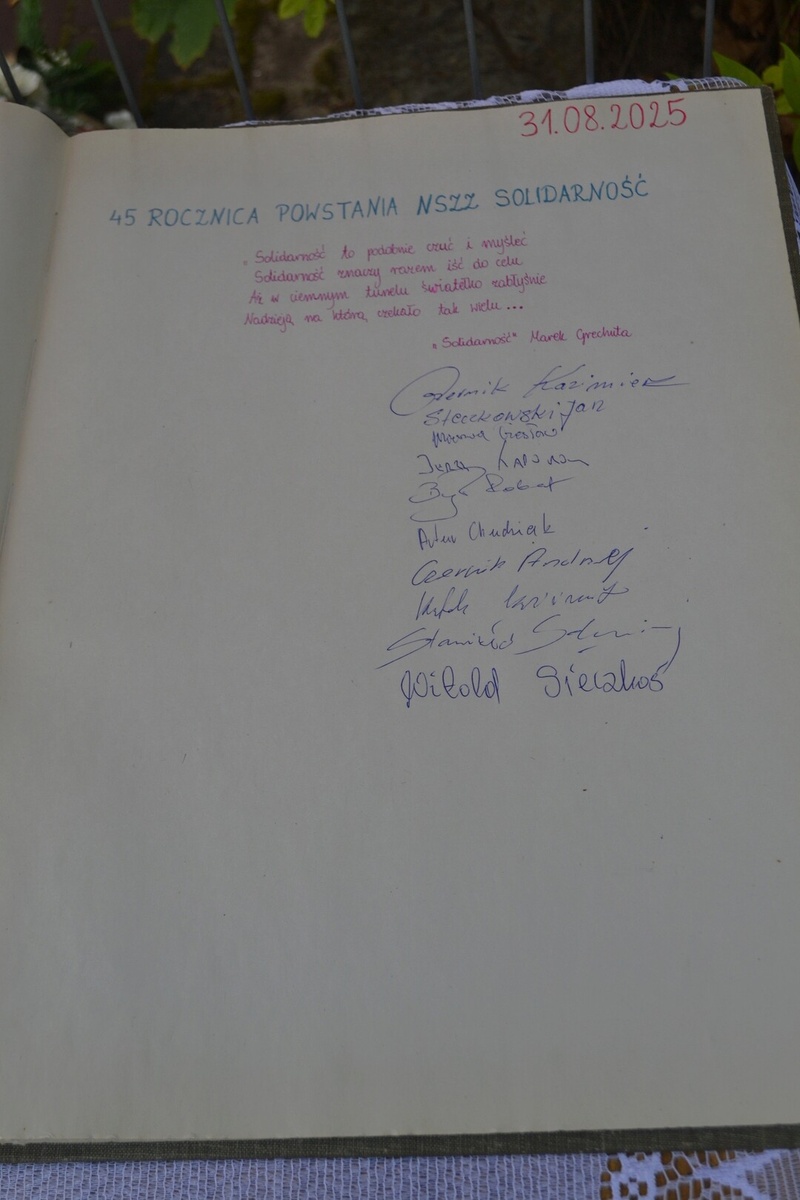 31.08.2025
45 ROCZNICA POWSTANIA NSZZ SOLIDARNOŚĆ
„Solidarność to podobnie czuć i myśleć
Solidarność znaczy razem iść do celu
Aż w ciemnym tunelu światełko zabłyśnie
Nadzieją na którą czekało tak wielu...
„Solidarność" Marek Grechuta
Czernik Kazimierz
Steckowski Jan
Jerzy
Byś Robert
Artur Chudziak
Czernik Andrzej
Stanisław
Witold Sieczkoś